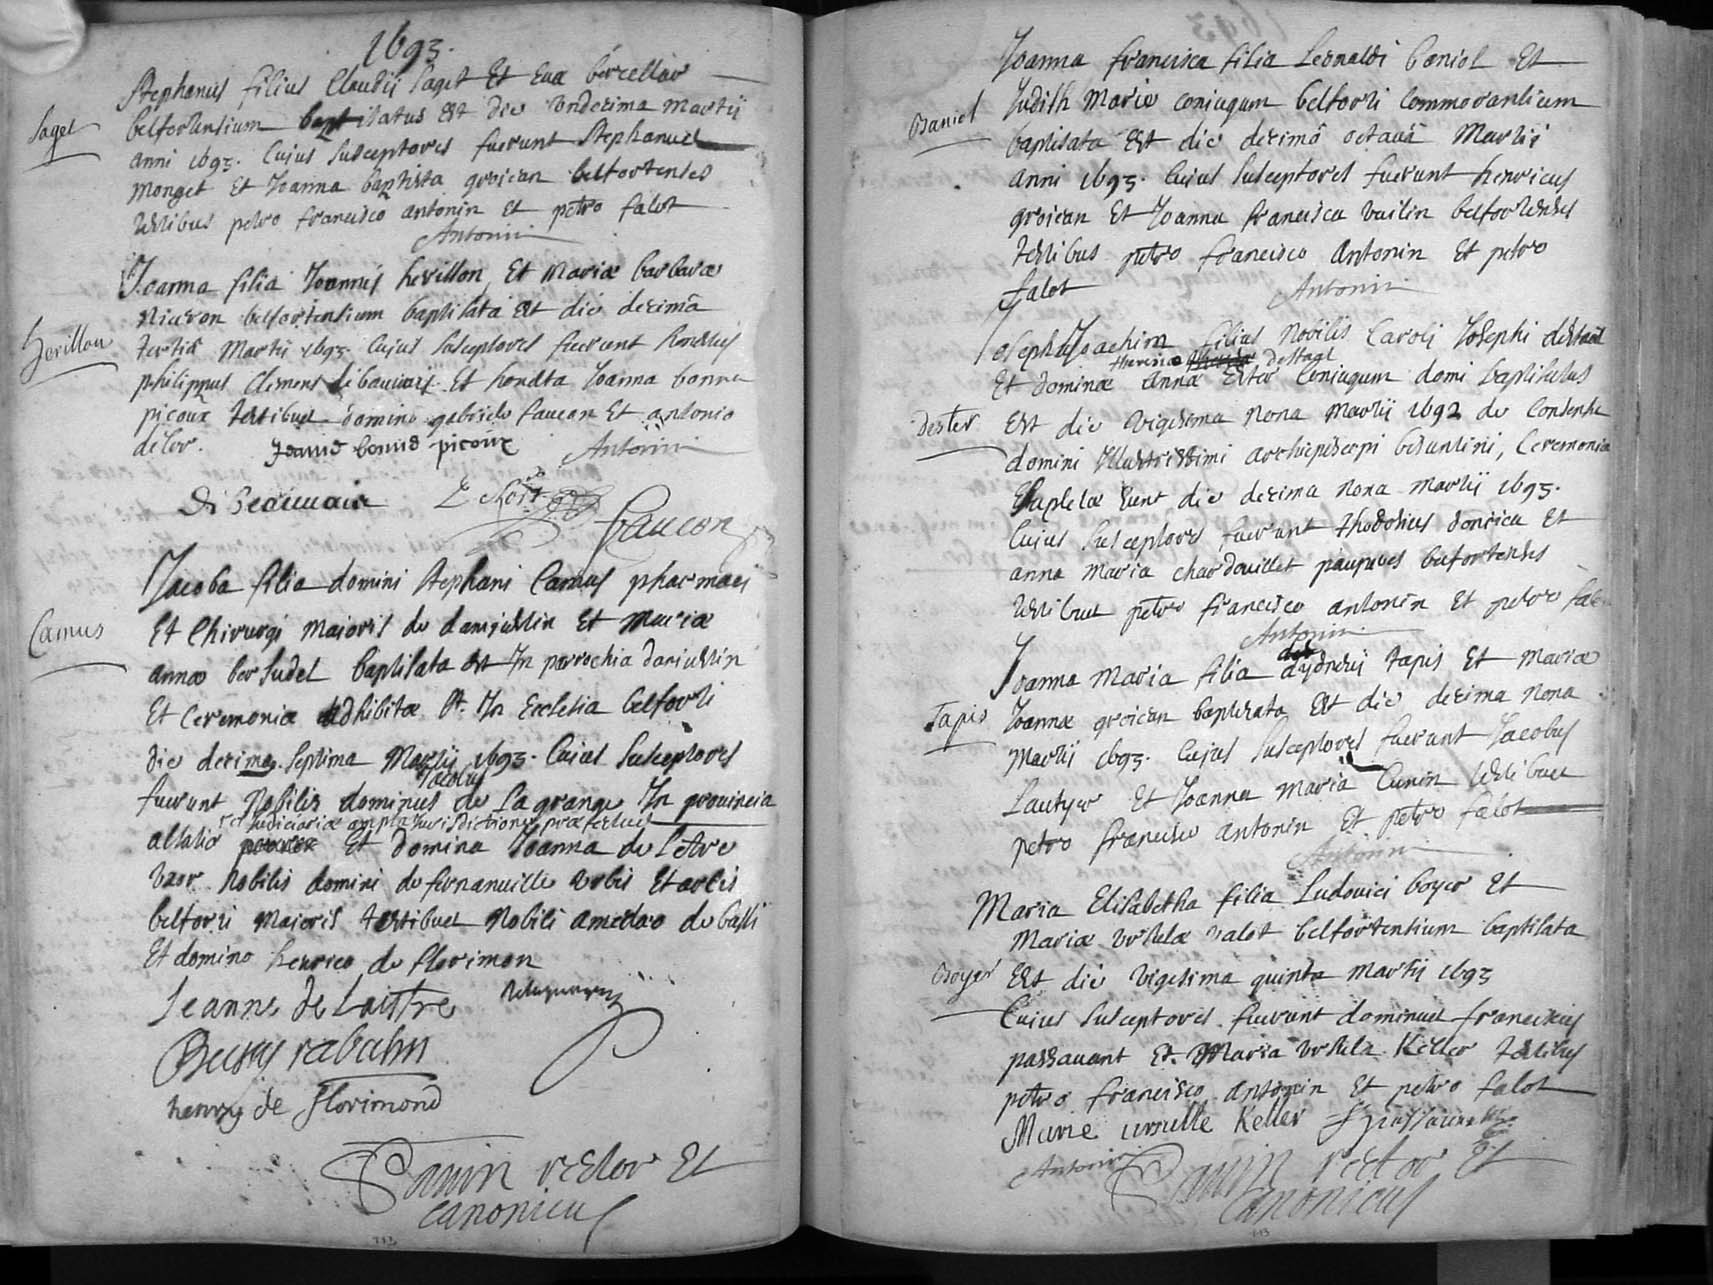 1693.
Saget
Stephanus filius Claudii Saget Et Eva bercellar
belfortensium baptisatus est die undecima Martii
anni 1693. Cuius Susceptores fuerunt Stephanus
monget Et Joanna baptista groiean belfortenses
testibus petro francisco antonin Et petro falot
Antonin
Joanna filia Joannis herillon Et Mariæ barbaræ
herillon
belfortensium baptisata est die decimâ
tertiâ Martii 1693. Cuius Susceptores fuerunt
philippus Clemens de bauuais Et Joanna bonne
picoux testibus domino gabriele faucon Et antonio
Jeanne bonne picoux Antonin
De Beauuais
faucon
Camus
Jacoba filia domini Stephani Camus pharmaci
Et Chirurgi maioris de Et Maria
annæ baptisata est In parrochia
Et Ceremoniæ adhibitæ st. In Ecclesia belforti
die decima Septima Martii 1693. Cuius Susceptores
Jacobus
fuerunt Nobilis dominus de La grange In prouincia
rei Judiciariæ amplæ Jurisdictionis præfectus
alsatiæ Et domina Joanna de Lestre
Uxor Nobilis domini de fernanuille urbis Et arcis
belforti Maioris testibus Nobili amedæo de
Et domino henrico de florimon
Jeanne de Laistre
henry de Florimond
rector Et
canonicus
113
Joanna francisca filia Leonaldi Daniel Et
Daniel
Judith Marie coniugum belforti Commorantium
baptisata Est die decimâ octauâ Martii
anni 1693. Cuius Susceptores fuerunt henricus
groiean Et Joanna francisca vuilin belfortenses
testibus petro francisco antonin Et petro
falot Antonin
Josephus Joachim filius Nobilis Caroli Josephi
theresia
Et dominæ annæ Coniugum domi baptisatus
dester
Est die vigesima Nona Martii 1692 de Consensu
domini Illustrissimi archiepiscopi bisuntini, Ceremoniæ
Sunt die decima Nona Martii 1693.
Cuius Susceptores fuerunt Et
anna Maria chardouillet pauperes belfortenses
testibus petro francisco antonin Et petro
Antonin
Joanna Maria filia Tapis Et Mariæ
Tapis
Joannæ groiean baptisata Est die decima Nona
Martii 1693. Cujus Susceptores fuerunt Jacobus
Et Joanna Maria Cunin testibus
petro francisco antonin Et petro falot
Antonin
Maria Elisabetha filia Ludouici boyer Et
Mariæ ursulæ valot belfortensium baptisata
Boyer
Est die vigesima quinta Martii 1693
Cuius Susceptores fuerunt dominus franciscus
passauant Et Maria ursula Keller testibus
petro francisco antonin Et petro falot
Marie ursulle Keller
Antonin
rector Et
Canonicus
113